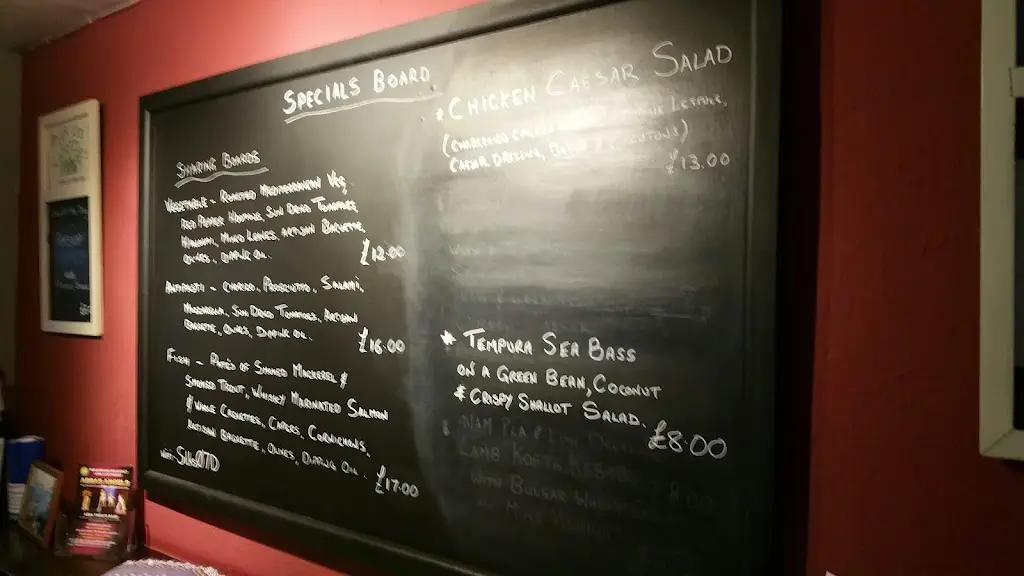 SPECIALS BOARD
SHARING BOARDS
VEGETABLE - ROASTED MEDITERRANEAN VEG,
RED PEPPER HUMMUS, SUN DRIED TOMATOES,
MIXED LEAVES, ARTISAN BAGUETTE,
OLIVES, DIPPING OIL. £12.00
ANTIPASTI - CHORIZO, PROSCIUTTO, SALAMI,
MOZZARELLA, SUN DRIED TOMATOES, ARTISAN
BAGUETTE, OLIVES, DIPPING OIL. £16.00
FISH - PATÉS OF SMOKED MACKEREL &
SMOKED TROUT, WHISKY MARINATED SALMON
& WHOLE CREVETTES, CAPERS, CORNICHONS,
ARTISAN BAGUETTE, OLIVES, DIPPING OIL £17.00
* CHICKEN CAESAR SALAD
LETTUCE,
CAESAR DRESSING,
£13.00
* TEMPURA SEA BASS
ON A GREEN BEAN, COCONUT
& CRISPY SHALLOT SALAD. £8.00
LAMB KOFTA KEBABS
WITH BULGAR